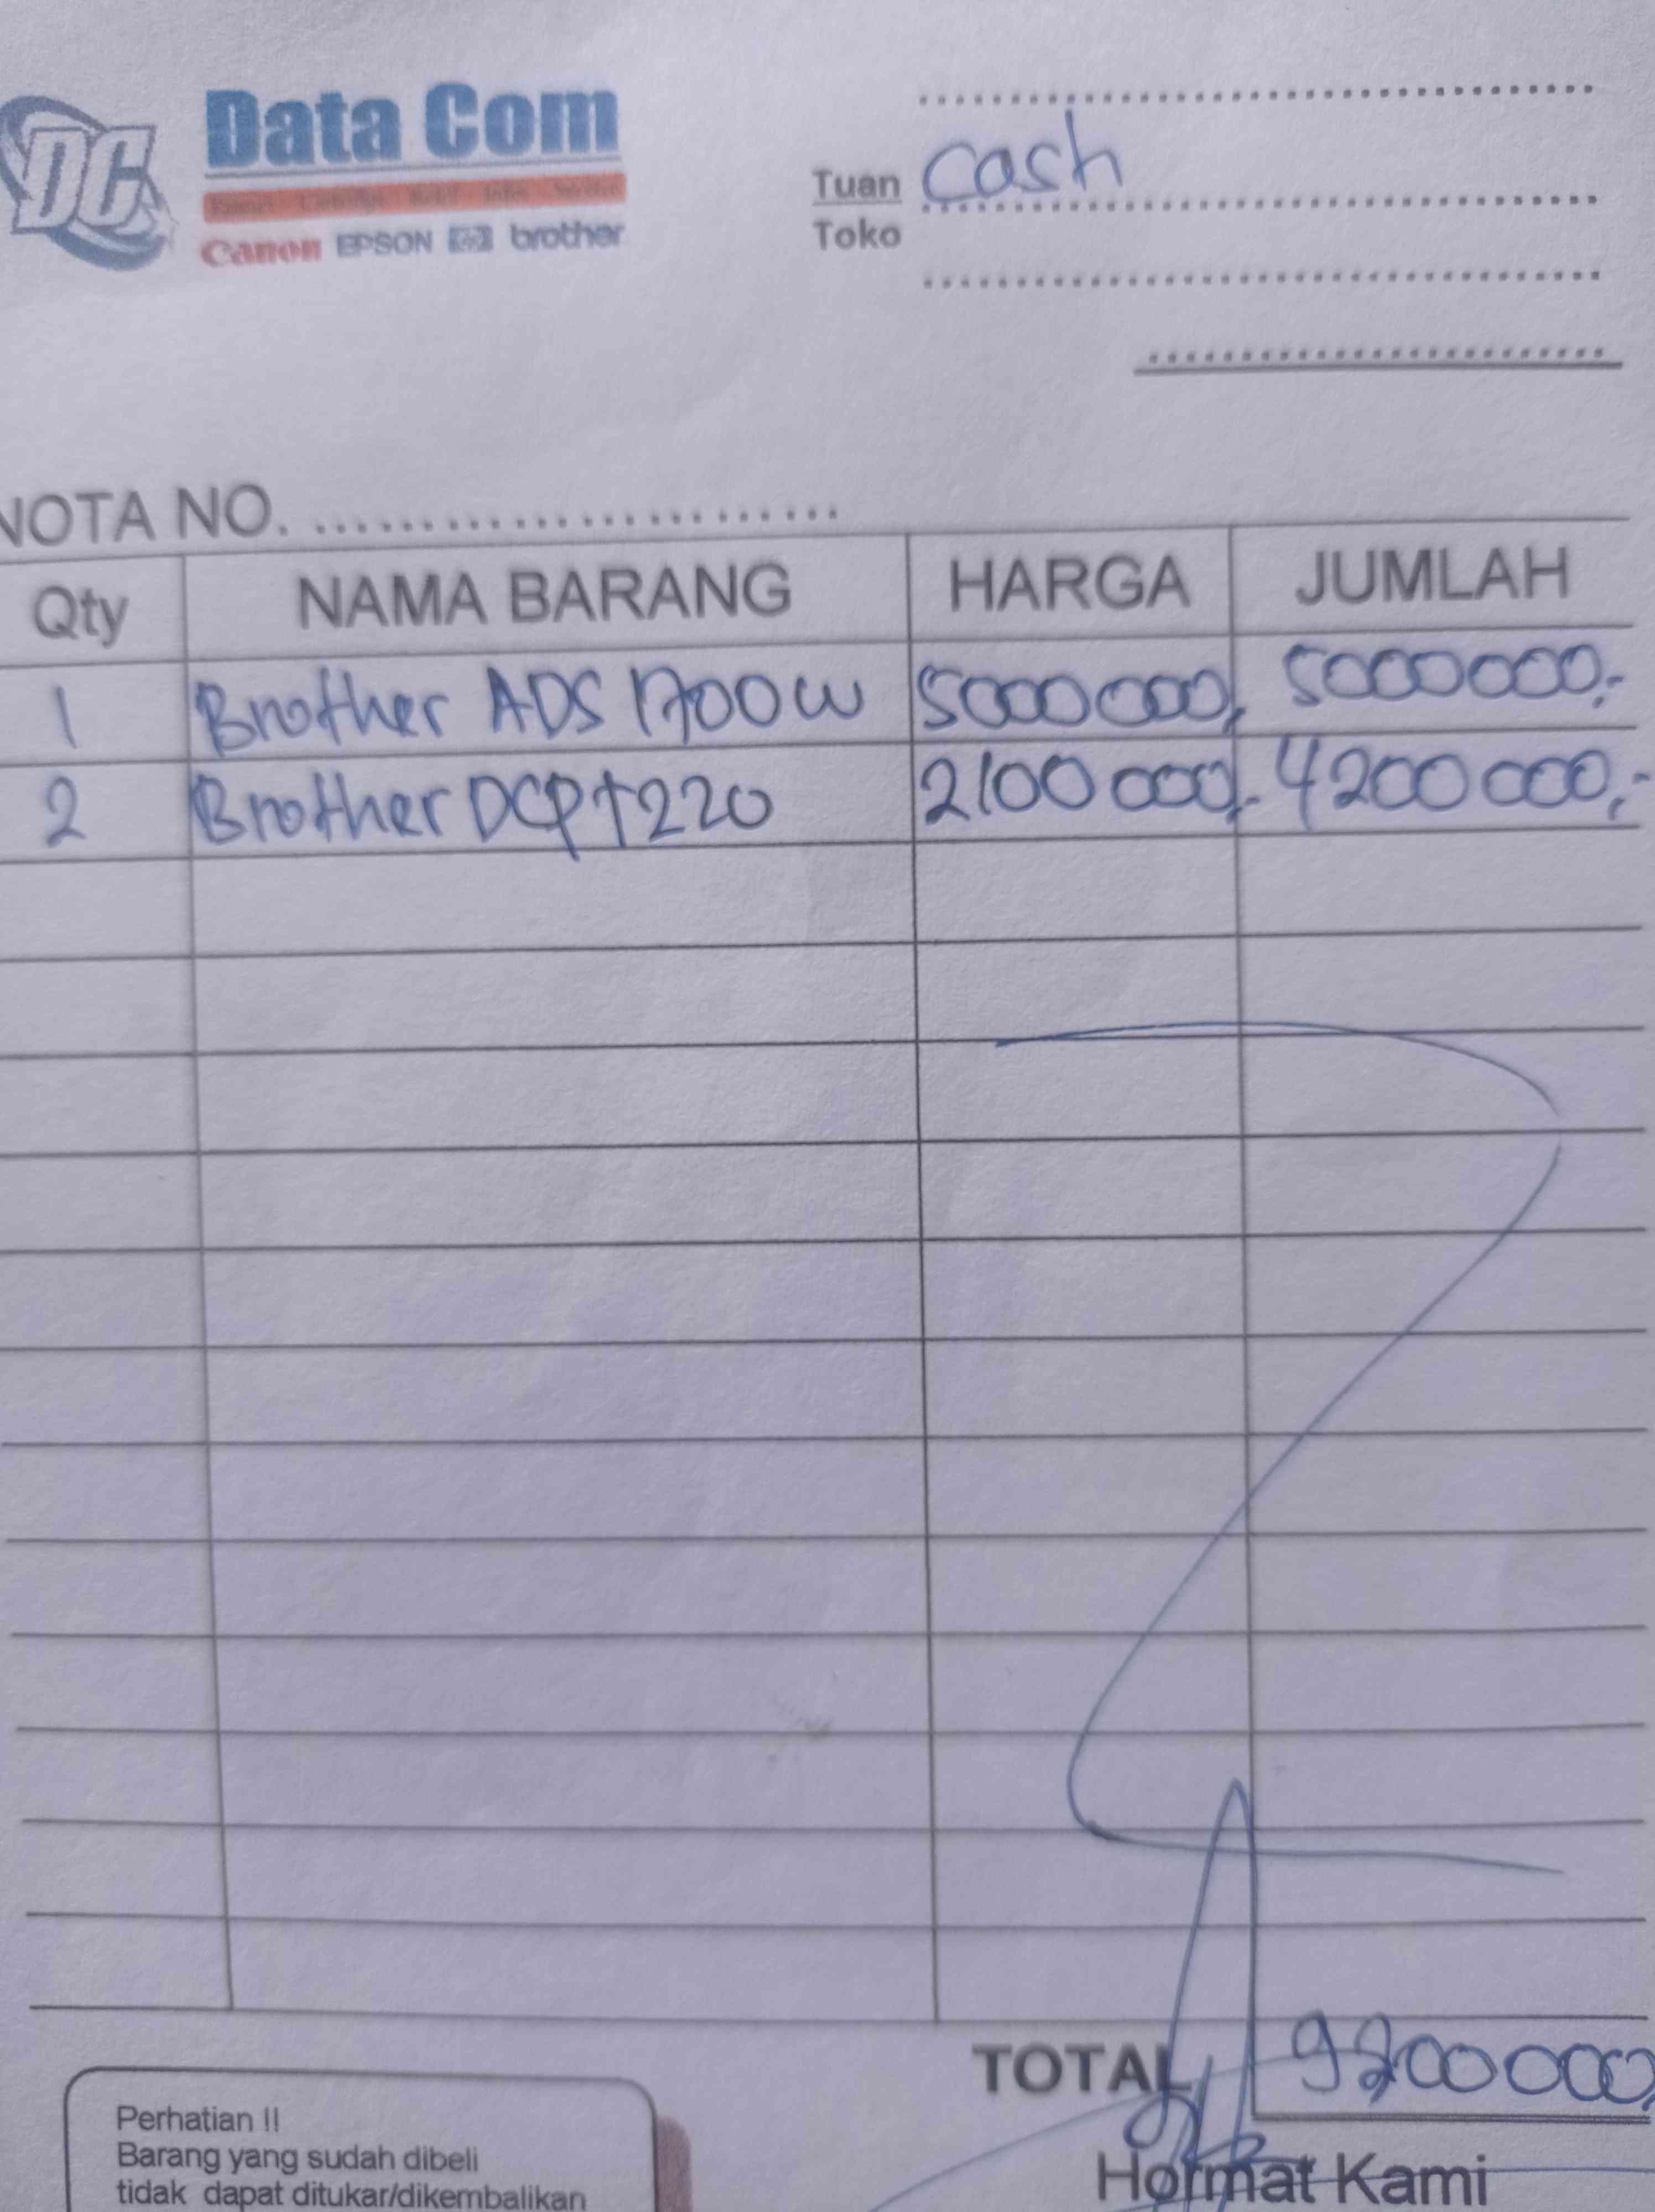 DC
Data Com
Canon EPSON hp brother
Tuan cash
Toko
NOTA NO.
Qty NAMA BARANG HARGA JUMLAH
1 Brother ADS 1700W 5000000,- 5000000,-
2 Brother DCP T220 2100000,- 4200000,-
TOTAL 9200000,
Perhatian !!
Barang yang sudah dibeli
tidak dapat ditukar/dikembalikan
Hormat Kami